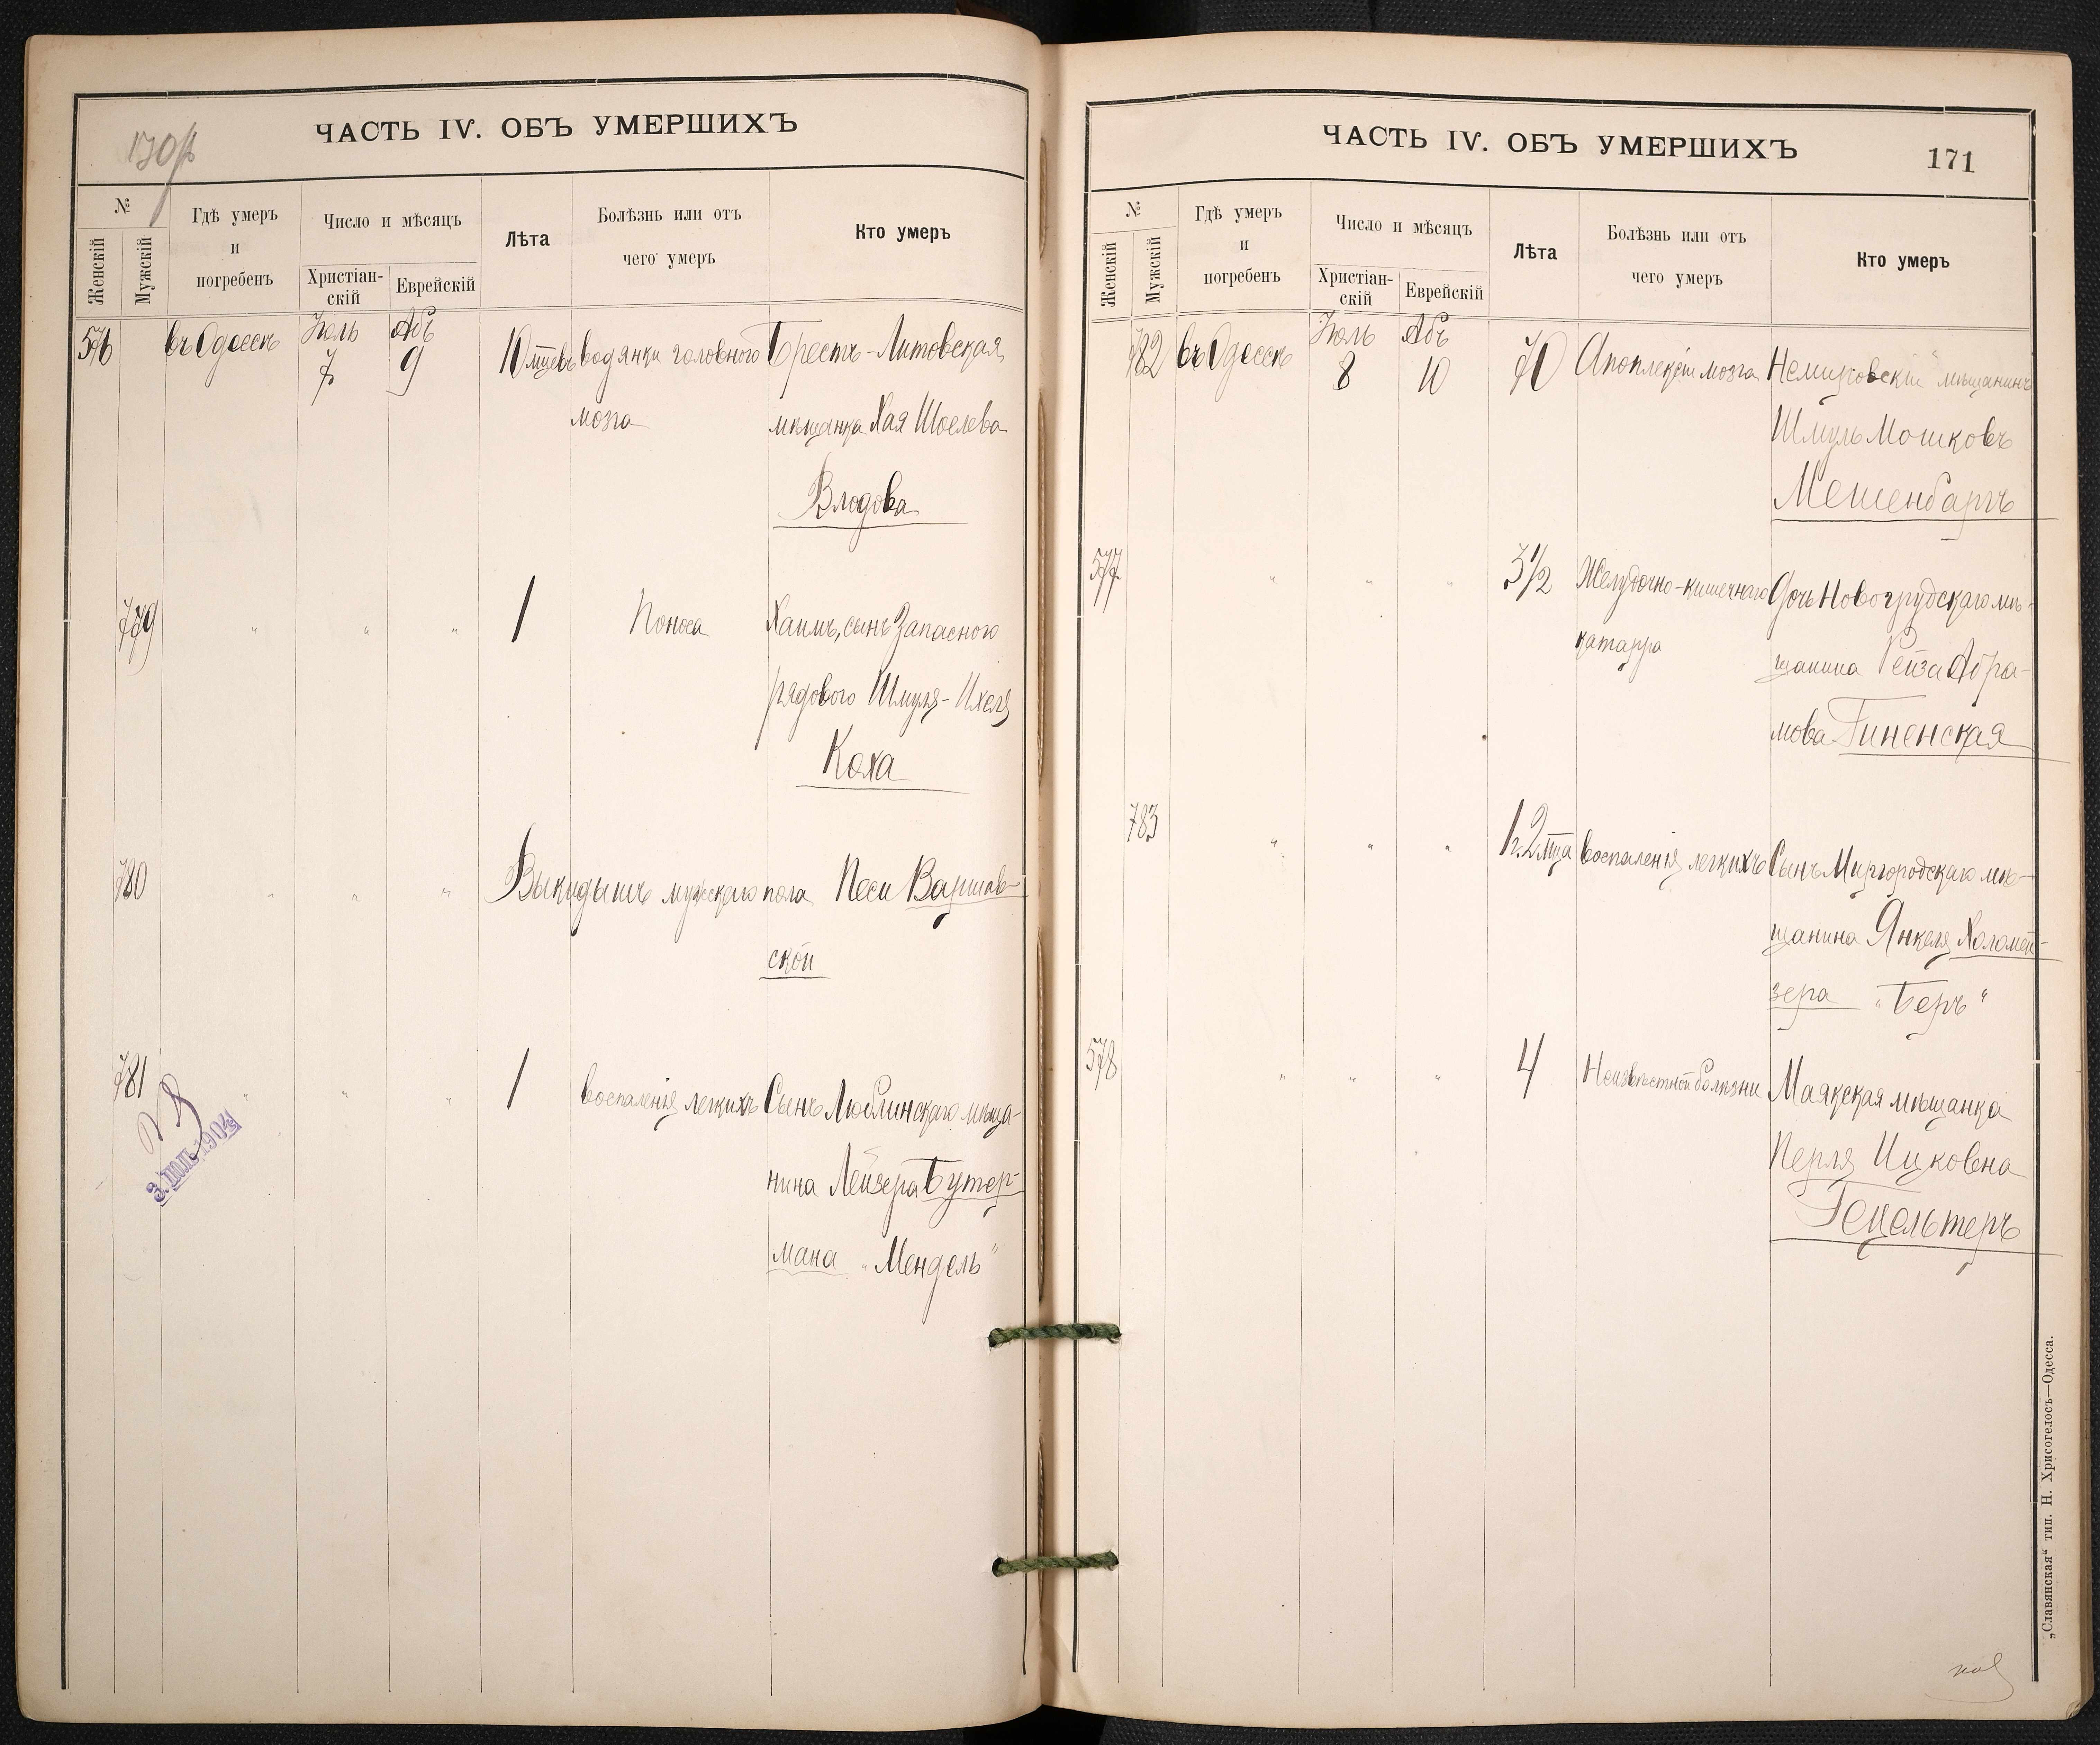 ЧАСТЬ IV. ОБЪ УМЕРШИХЪ
№
Женскій
Мужскій
Гдѣ умеръ
и
погребенъ
Число и мѣсяцъ
Христіан-
скій
Еврейскій
Лѣта
Болѣзнь или отъ
чего умеръ
Кто умеръ
576 въ Одессѣ Іюль 7 Абъ 9 10 мцевъ водянки головного Брестъ-Литовская
мозга мѣщанка Хая Шоелева
Влодова
779 " " " 1 Поноса Хаимъ, сынъ Запасного
рядового Шмуля-Ихеля
Коха
780 " " " Выкидышъ мужскаго пола Песи Варшав-
ской
781 " " " 1 воспаленія легкихъ Сынъ Люблинскаго мѣща-
нина Лейзера Бутер-
мана „Мендель"
3. ІЮЛЬ 1904
ЧАСТЬ IV. ОБЪ УМЕРШИХЪ
171
№
Женскій
Мужскій
Гдѣ умеръ
и
погребенъ
Число и мѣсяцъ
Христіан-
скій
Еврейскій
Лѣта
Болѣзнь или отъ
чего умеръ
Кто умеръ
782 въ Одессѣ Іюль 8 Абъ 10 70 Апоплексіи мозга Немировскій мѣщанинъ
Шмуль Мошковъ
Мешенбаргъ
577 " " " 3½ Желудочно-кишечнаго Дочь Новогрудскаго мѣ-
катарра щанина Рейза Абра-
мова Гиненская
783 " " " 1г. 2 мца воспаленія легкихъ Сынъ Миргородскаго мѣ-
щанина Янкеля Холомей-
зера „Беръ"
578 " " " 4 Неизвѣстной болѣзни Маякская мѣщанка
Перля Ицковна
Гецельтеръ
„Славянская" тип. Н. Хрисогелосъ—Одесса.